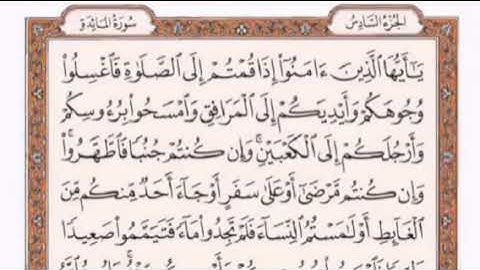 سُورَةُ المَائِدَةِ
الجُزْءُ السَّادِسُ
يَـٰٓأَيُّهَا ٱلَّذِينَ ءَامَنُوٓا۟ إِذَا قُمْتُمْ إِلَى ٱلصَّلَوٰةِ فَٱغْسِلُوا۟
وُجُوهَكُمْ وَأَيْدِيَكُمْ إِلَى ٱلْمَرَافِقِ وَٱمْسَحُوا۟ بِرُءُوسِكُمْ
وَأَرْجُلَكُمْ إِلَى ٱلْكَعْبَيْنِ ۚ وَإِن كُنتُمْ جُنُبًا فَٱطَّهَّرُوا۟ ۚ
وَإِن كُنتُم مَّرْضَىٰٓ أَوْ عَلَىٰ سَفَرٍ أَوْ جَآءَ أَحَدٌ مِّنكُم مِّنَ
ٱلْغَآئِطِ أَوْ لَـٰمَسْتُمُ ٱلنِّسَآءَ فَلَمْ تَجِدُوا۟ مَآءً فَتَيَمَّمُوا۟ صَعِيدًا